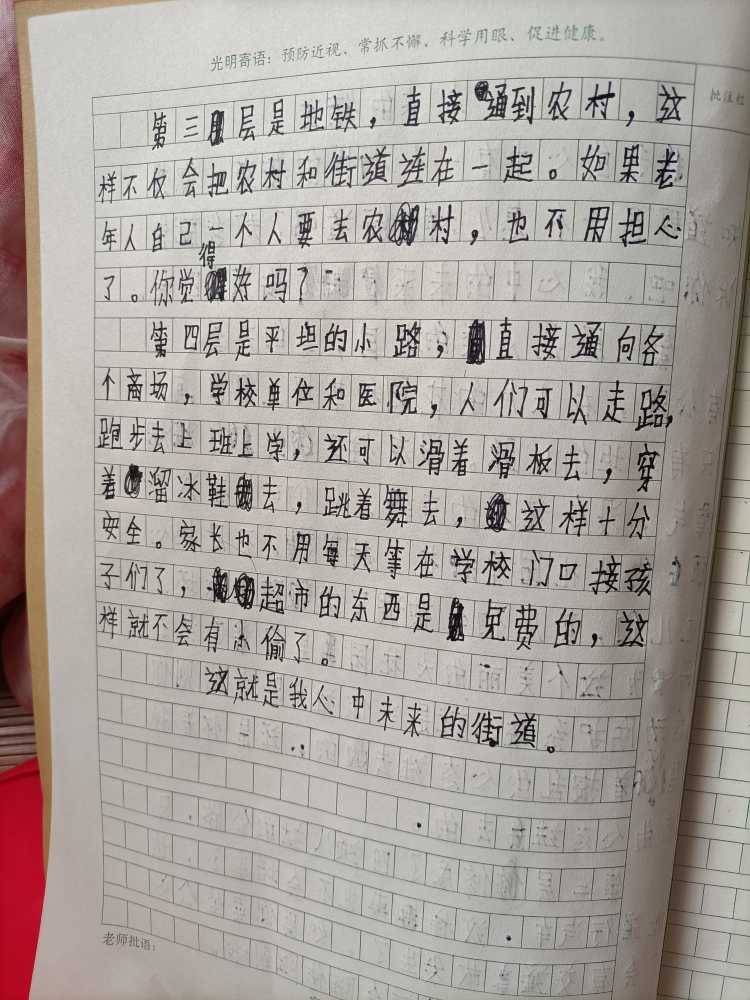 光明寄语：预防近视、常抓不懈、科学用眼、促进健康。
批注栏
第三层是地铁，直接通到农村，这
样不仅会把农村和街道连在一起。如果老
年人自己一个人要去农村，也不用担心
了。你觉得好吗？
第四层是平坦的小路，直接通向各
个商场，学校单位和医院，人们可以走路，
跑步去上班上学，还可以滑着滑板去，穿
着溜冰鞋去，跳着舞去，这样十分
安全。家长也不用每天等在学校门口接孩
子们了，超市的东西是免费的，这
样就不会有小偷了。
这就是我心中未来的街道。
老师批语：